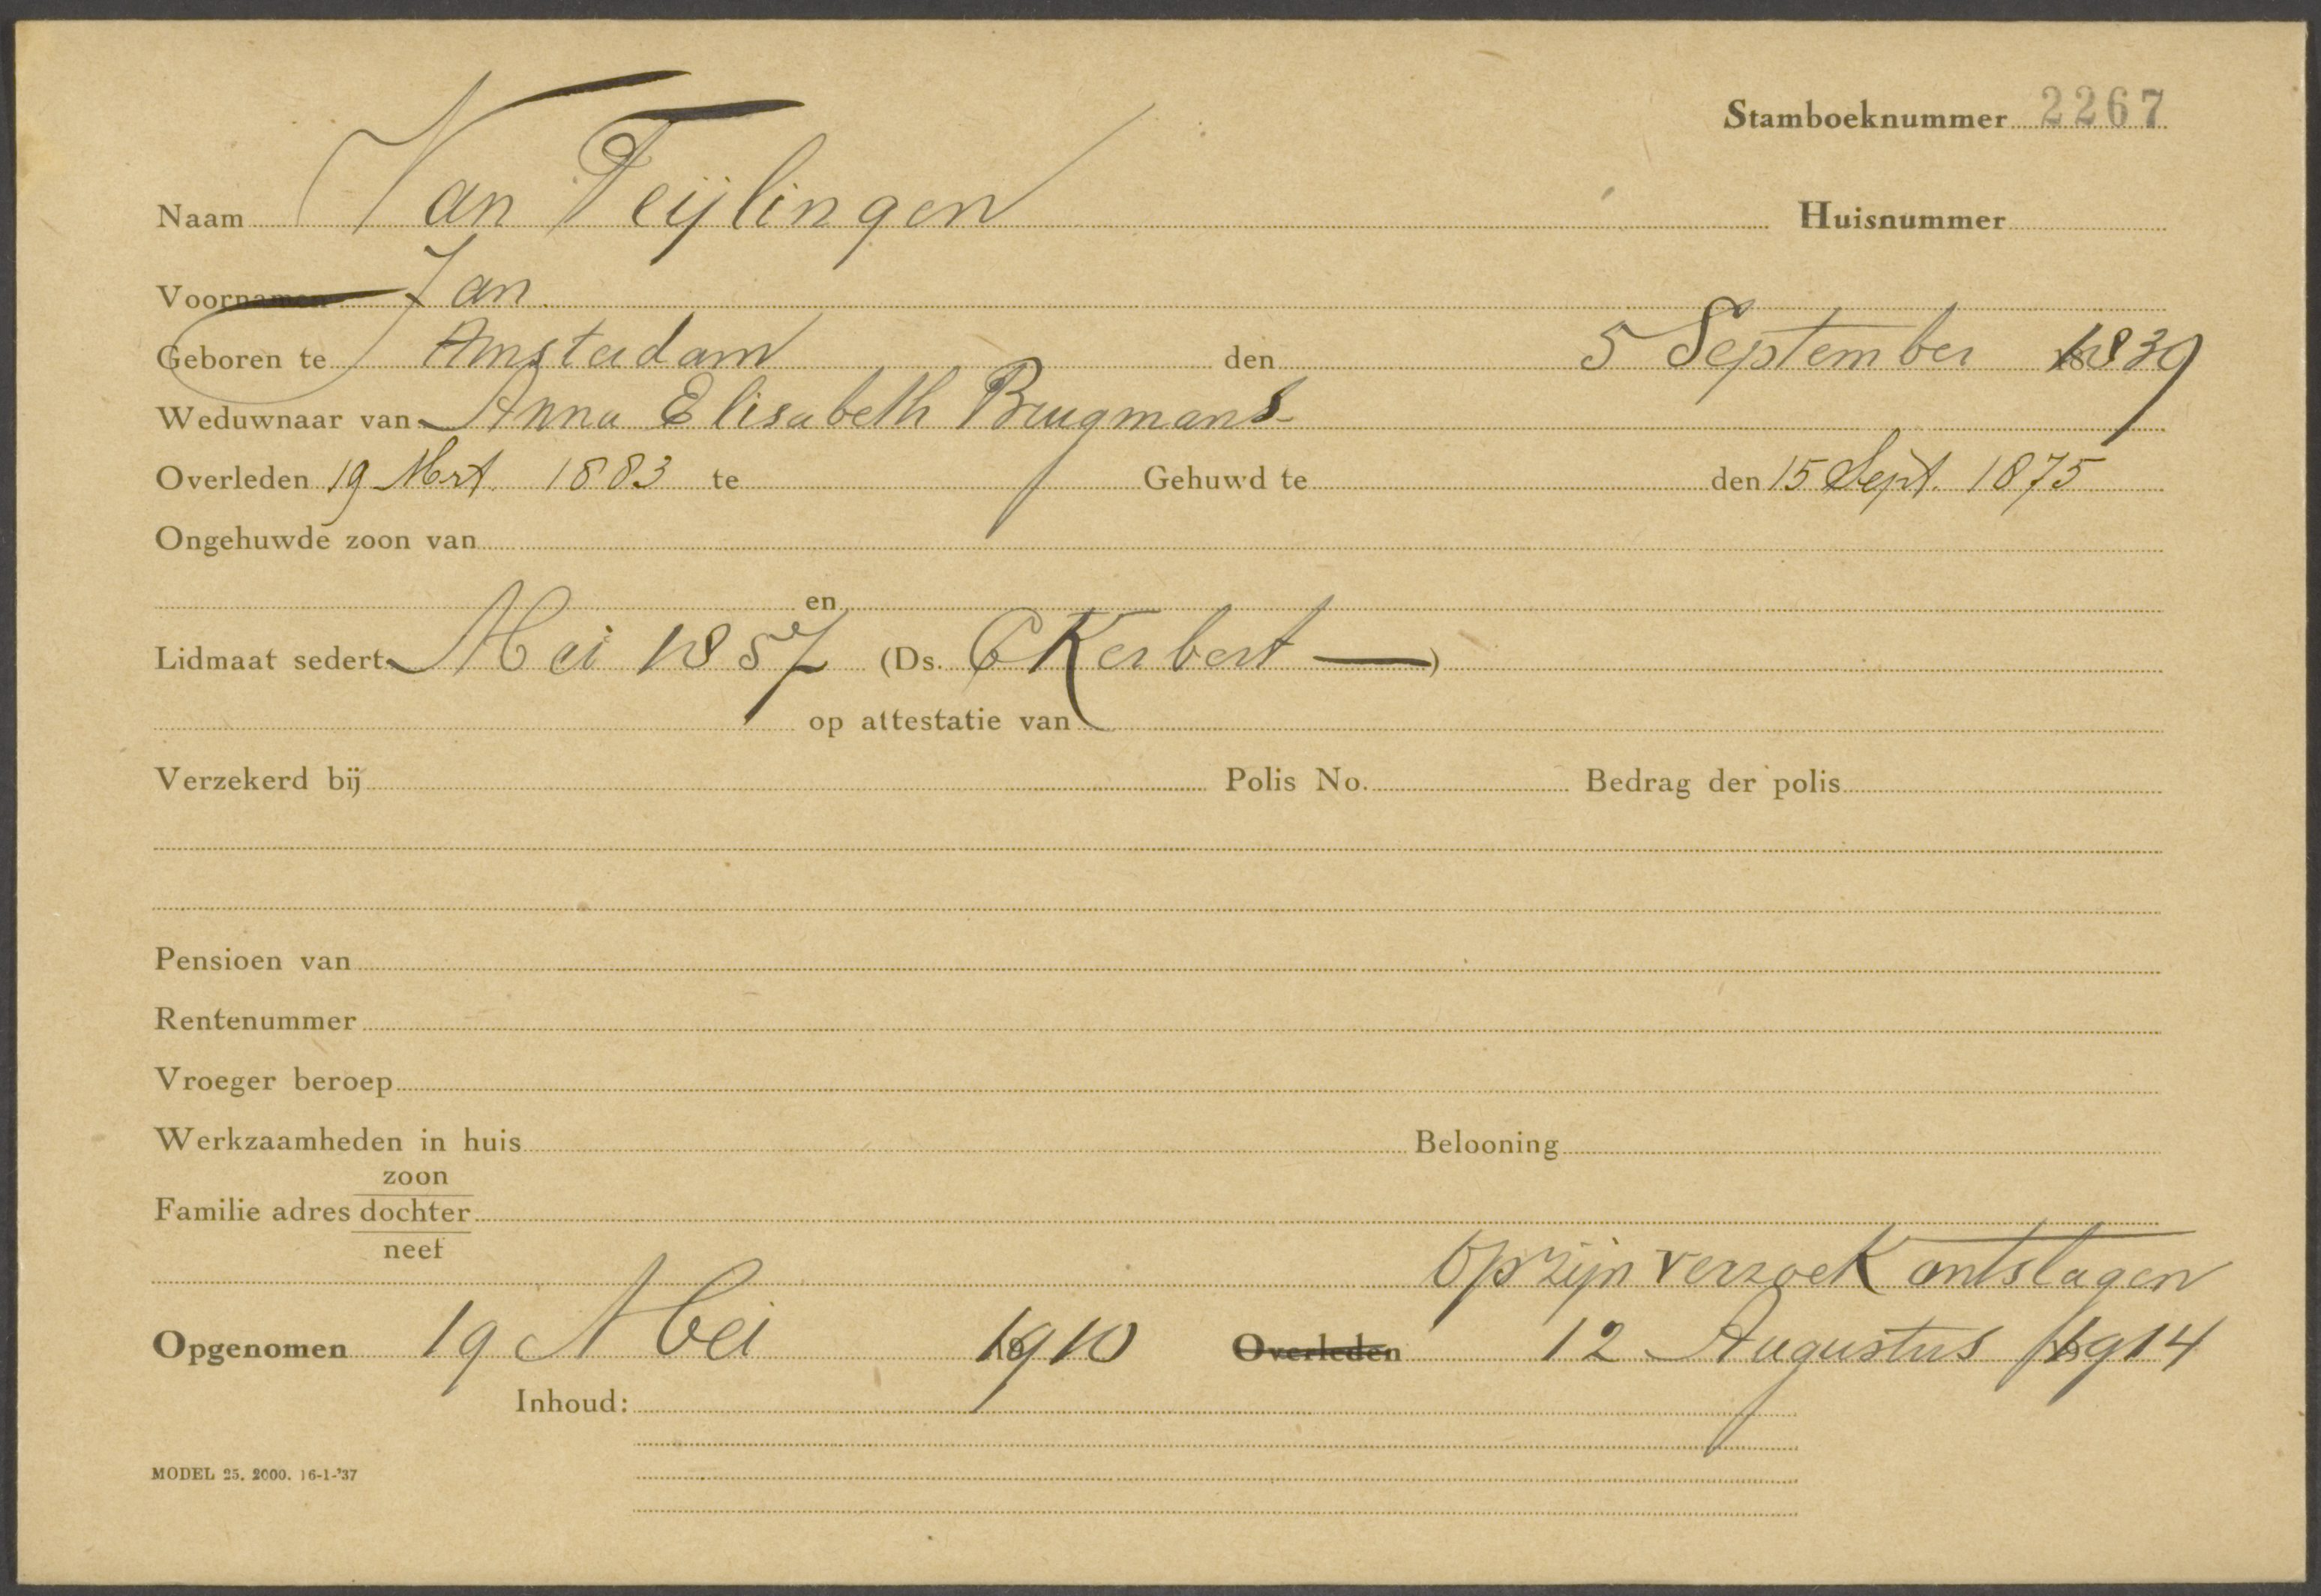 Stamboeknummer 2267
Naam Van Teijlingen Huisnummer
Voornamen Jan.
Geboren te Amsterdam den 5 September 1839
Weduwnaar van Anna Elisabeth Brugmans
Overleden 19 Mrt. 1883 te Gehuwd te den 15 Sept. 1875
Ongehuwde zoon van
en
Lidmaat sedert Mei 1857 (Ds. C Kerbert —)
op attestatie van
Verzekerd bij Polis No. Bedrag der polis
Pensioen van
Rentenummer
Vroeger beroep
Werkzaamheden in huis Belooning
zoon
Familie adres dochter
neef
Op zijn verzoek ontslagen
Opgenomen 19 Mei 1910 Overleden 12 Augustus 1914
Inhoud:
MODEL 25. 2000. 16-1-'37